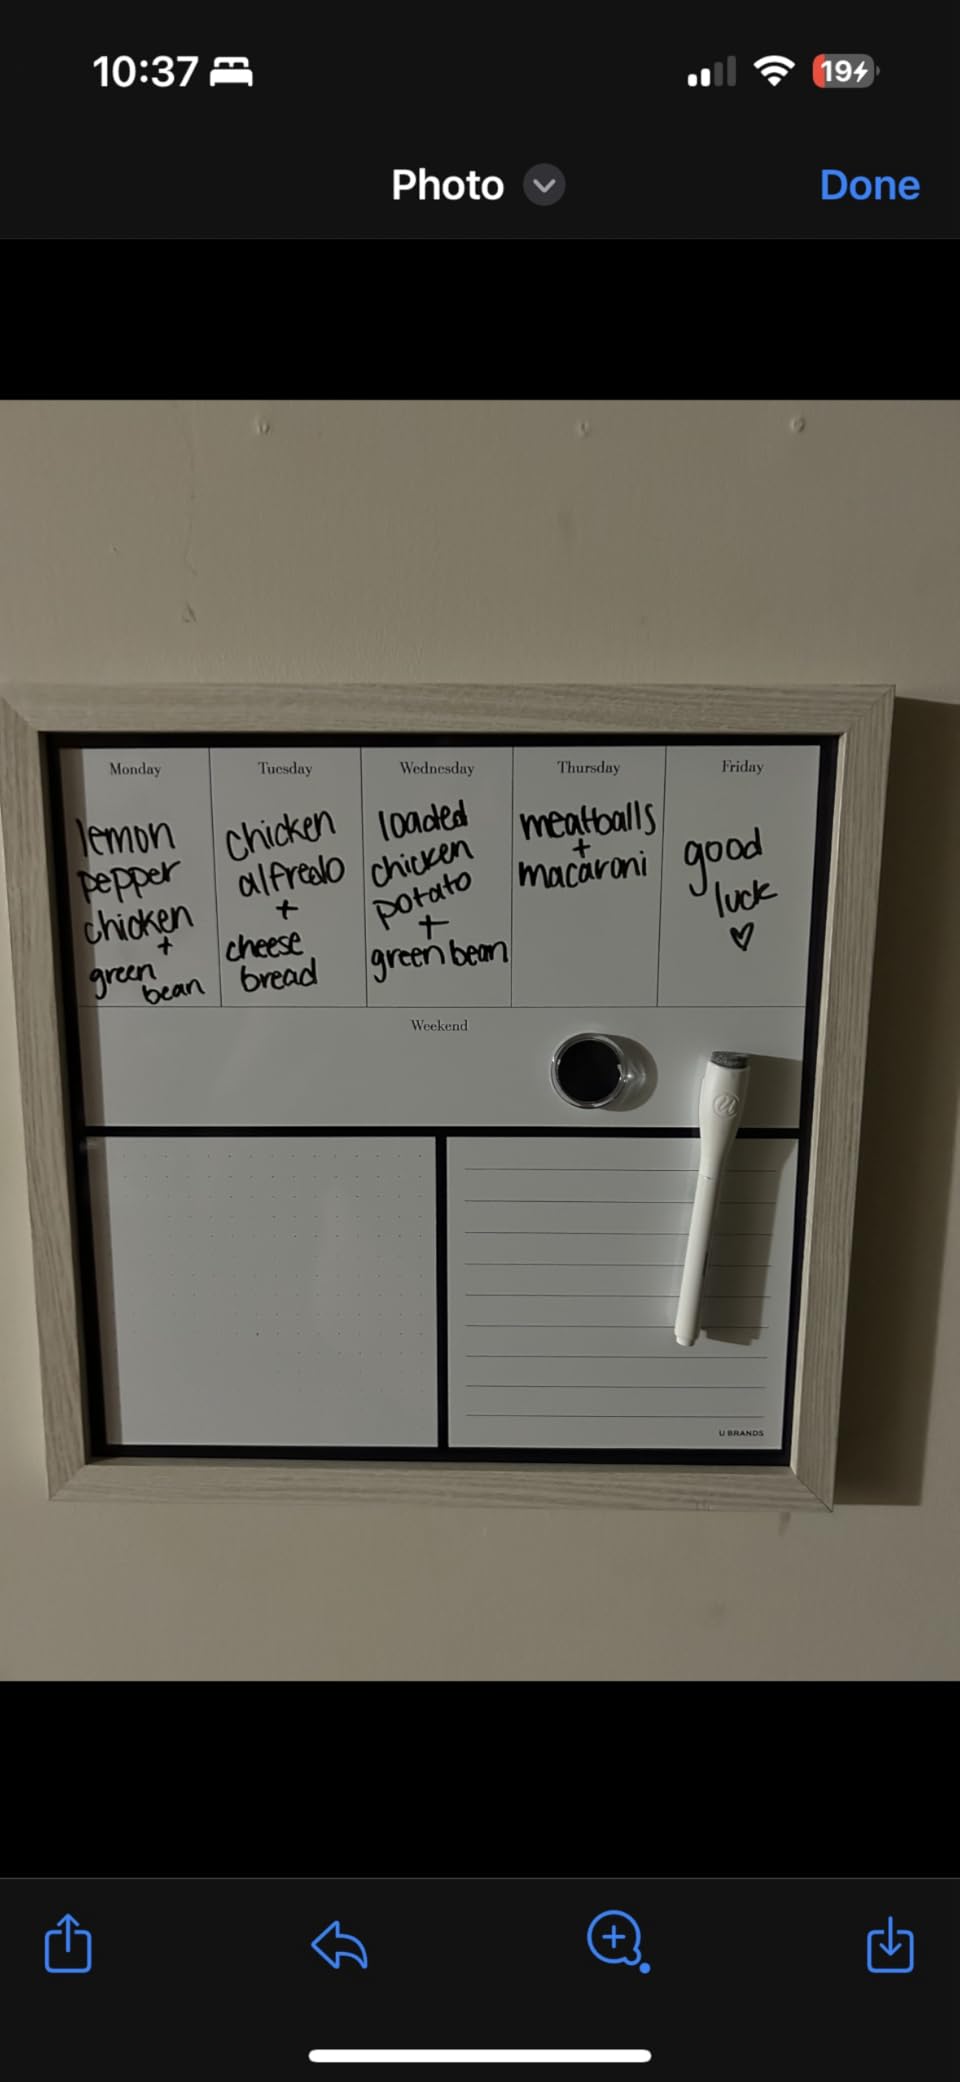 10:37
19
Photo
Done
Monday
lemon
pepper
chicken
+
green
bean
Tuesday
chicken
alfredo
+
cheese
bread
Wednesday
loaded
chicken
potato
+
green bean
Thursday
meatballs
+
macaroni
Friday
good
luck
♡
Weekend
U BRANDS